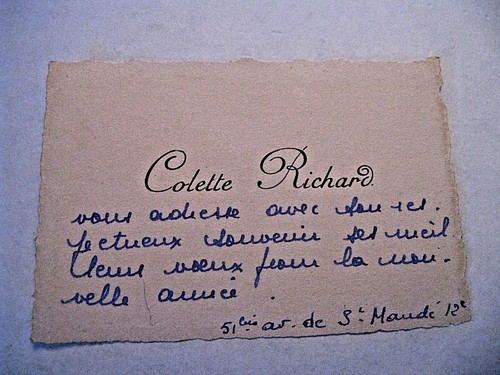 Colette Richard
vous adresse avec son res-
pectueux souvenir ses meil
leurs vœux pour la nou-
velle année.
51bis av. de St Mandé 12e